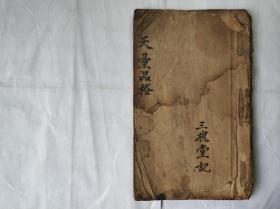 天量品格
三槐堂記